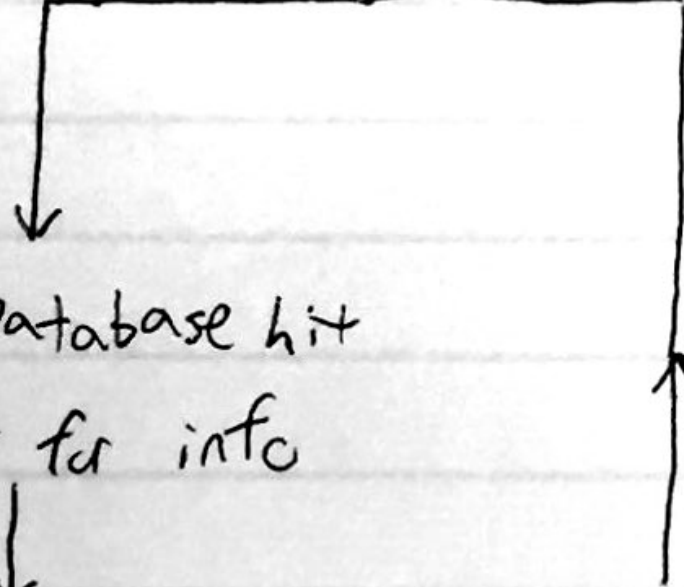 atabase hit
for info